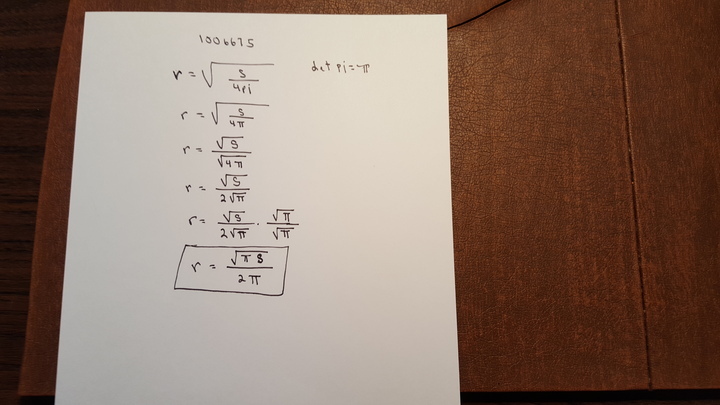 1006675
r = √(S/4pi) let pi = π
r = √(S/4π)
r = √S/√4π
r = √S/2√π
r = √S/2√π · √π/√π
r = √πS/2π